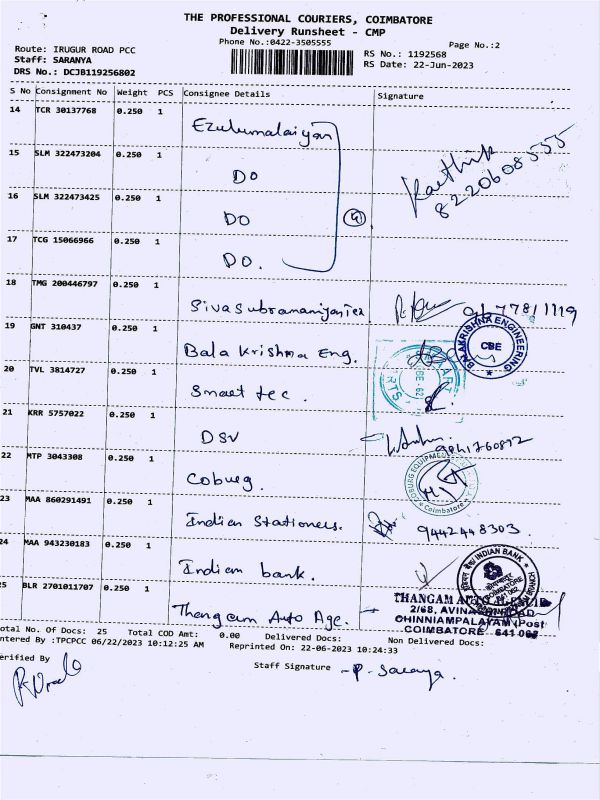 THE PROFESSIONAL COURIERS, COIMBATORE
Delivery Runsheet - CMP
Phone No.:0422-3505555
Page No.:2
Route: IRUGUR ROAD PCC
RS No.: 1192568
Staff: SARANYA
RS Date: 22-Jun-2023
DRS No.: DCJB119256802
S No Consignment No Weight PCS Consignee Details Signature
14 TCR 30137768 0.250 1
Ezhumalaiyan
Karthik
8220608555
15 SLM 322473204 0.250 1
DO
16 SLM 322473425 0.250 1
DO
4
17 TCG 15066966 0.250 1
DO.
18 TMG 200446797 0.250 1
Sivasubramaniyan Tex
19 GNT 310437 0.250 1
Bala Krishna Eng.
BALAKRISHNA ENGINEERING
CBE
20 TVL 3814727 0.250 1
Smart tec.
21 KRR 5757022 0.250 1
DSV
22 MTP 3043308 0.250 1
Coburg.
COBURG EQUIPMENT
Coimbatore
23 MAA 860291491 0.250 1
Indian Stationers.
9442448303
24 MAA 943230183 0.250 1
Indian bank.
INDIAN BANK
25 BLR 2701011707 0.250 1
Thangam Auto Age.
THANGAM AUTO
2/68, AVINASHI ROAD
CHINNIAMPALAYAM (Post
COIMBATORE
Total No. Of Docs: 25 Total COD Amt: 0.00 Delivered Docs: Non Delivered Docs:
ntered By :TPCPCC 06/22/2023 10:12:25 AM Reprinted On: 22-06-2023 10:24:33
erified By
Staff Signature P. Saranya.